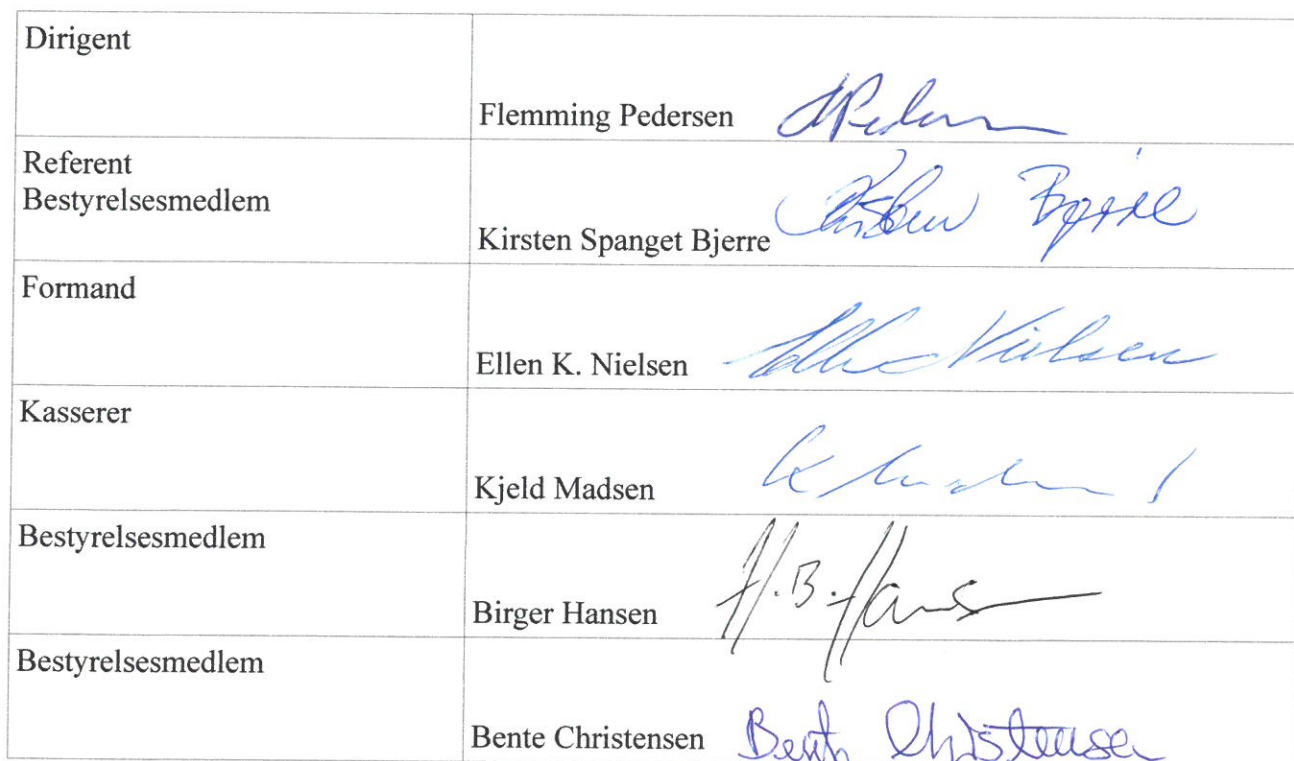 Dirigent
Flemming Pedersen
Referent
Bestyrelsesmedlem
Kirsten Spanget Bjerre Kirsten Bjerre
Formand
Ellen K. Nielsen Ellen Nielsen
Kasserer
Kjeld Madsen
Bestyrelsesmedlem
Birger Hansen H.B. Hans
Bestyrelsesmedlem
Bente Christensen Bente Christensen